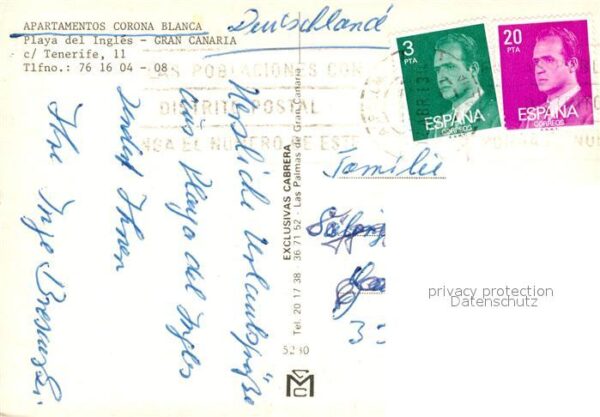 APARTAMENTOS CORONA BLANCA
Playa del Inglés - GRAN CANARIA
c/ Tenerife, 11
Tlfno.: 76 16 04 - 08
Deutschland
3
PTA
ESPAÑA
CORREOS
20
PTA
ESPAÑA
CORREOS
AS POBLACIONES CON
DISTRITO POSTAL
NGA EL NUMERO DE ESTE
Herzliche Urlaubsgrüße
aus Playa del Ingles
sendet Ihnen
Ihre Inge
EXCLUSIVAS CABRERA
Tel. 20 17 38 - 36 71 52 - Las Palmas de Gran Canaria
Familie
privacy protection
Datenschutz